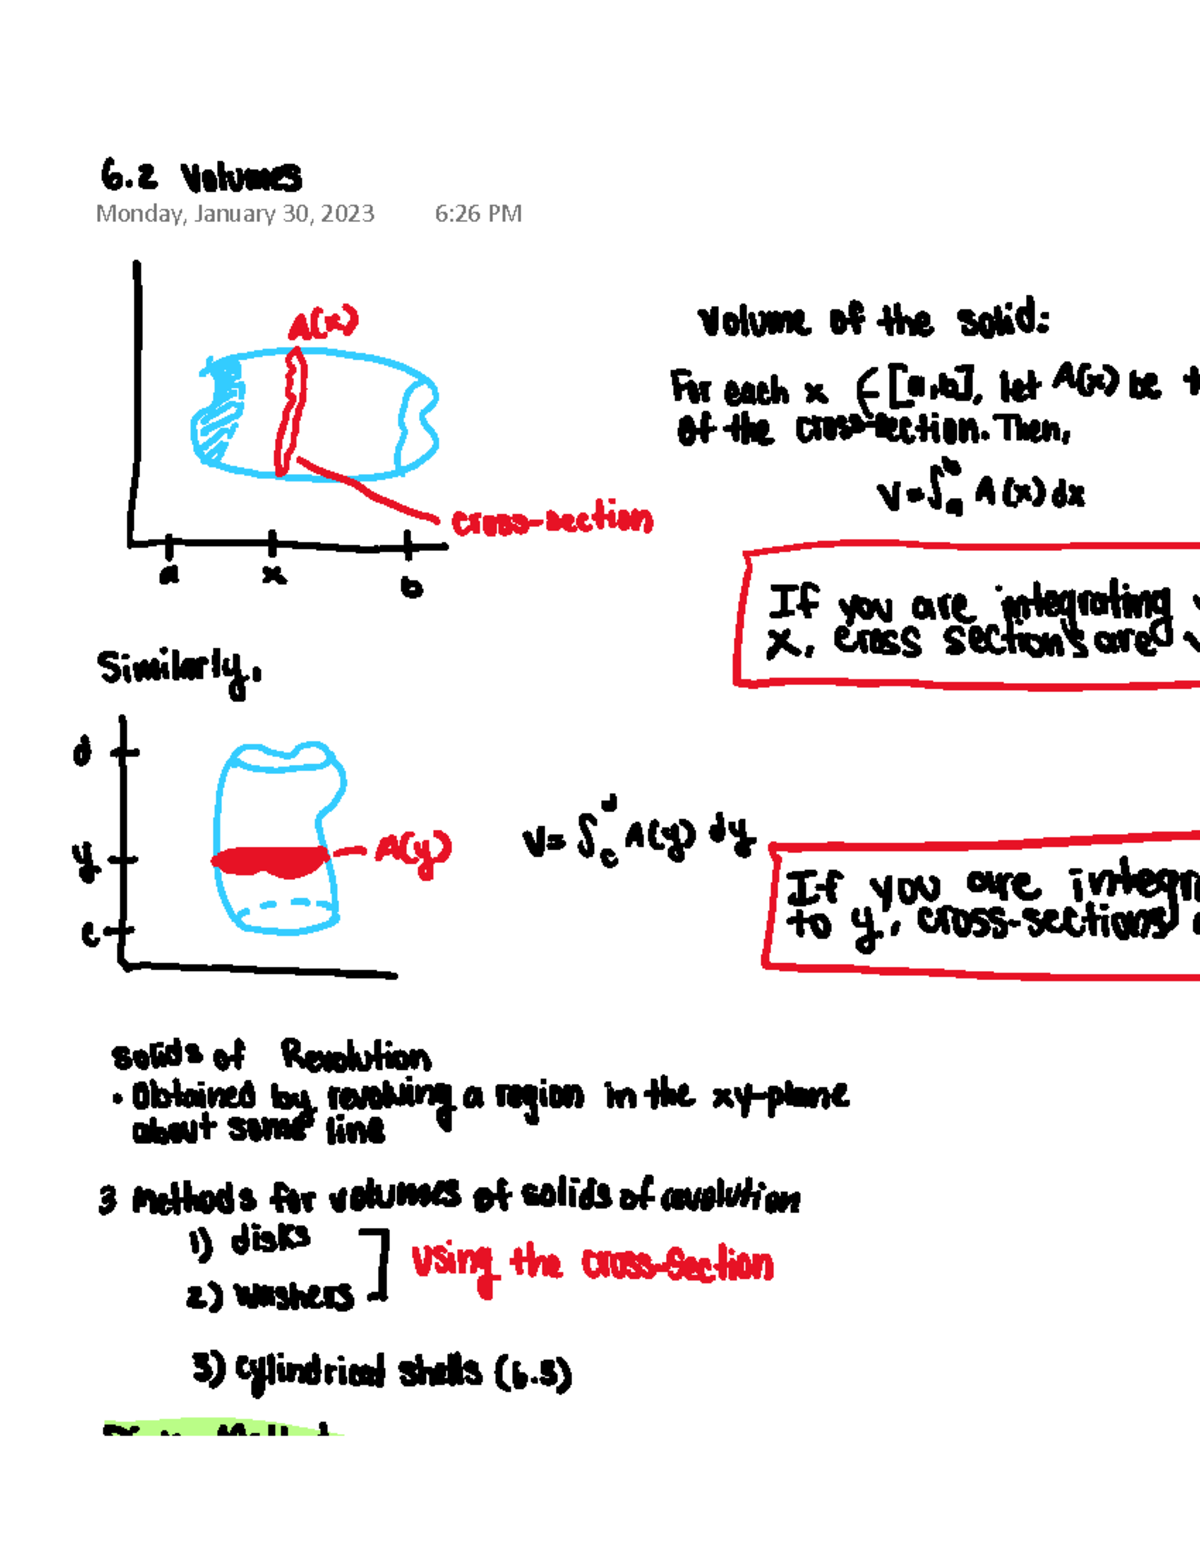 6.2 Volumes
Monday, January 30, 2023 6:26 PM
A(x)
cross-section
a x b
Volume of the solid:
For each x ∈ [a,b], let A(x) be
of the cross-section. Then,
V=∫ₐᵇ A(x) dx
If you are integrating
x, cross sections are
Similarly,
d
y
c
A(y)
V= ∫_c^d A(y) dy
If you are integr
to y, cross-sections
Solids of Revolution
• Obtained by revolving a region in the xy-plane
about some line
3 Methods for volumes of solids of revolution
1) disks
2) washers
Using the cross-section
3) cylindrical shells (6.3)